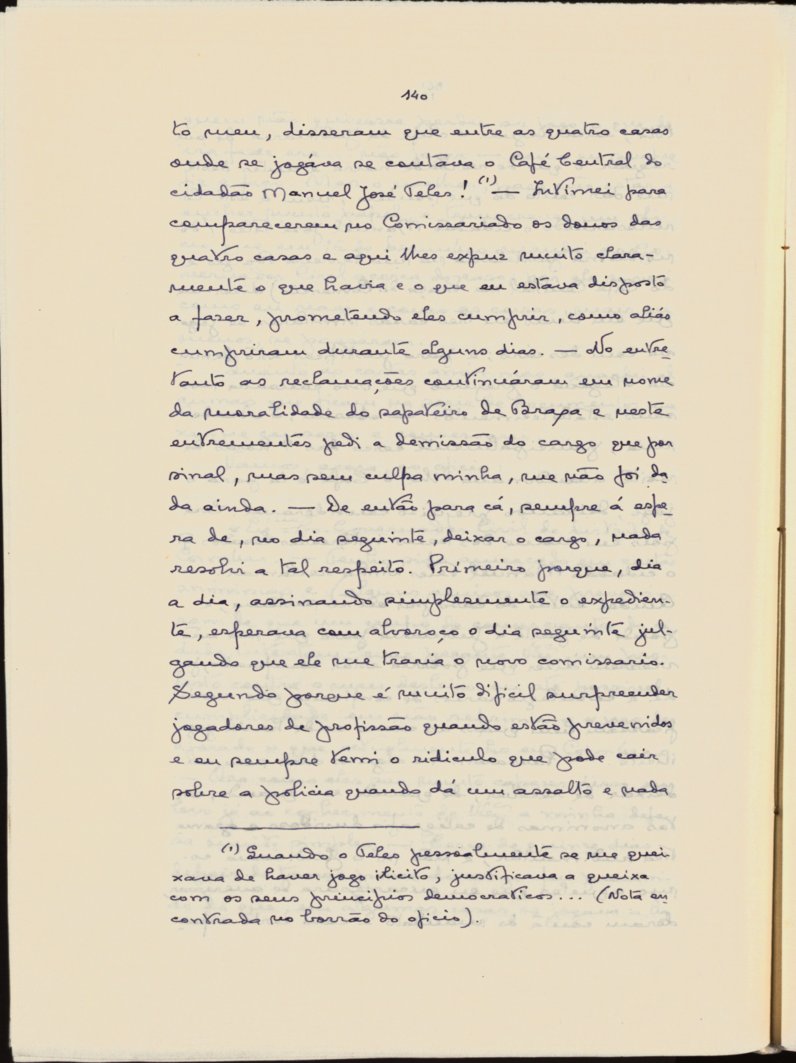 140
to meu, disseram que entre as quatro casas
onde se jogáva se contáva o Café Central do
cidadão Manuel José Teles! (1) — Intimei para
compareceram no Comissariado os donos das
quatro casas e aqui lhes expuz muito clara-
mente o que havia e o que eu estava disposto
a fazer, prometendo eles cumprir, como aliás
cumpriram durante alguns dias. — No entre-
tanto as reclamações continuáram em nome
da moralidade do sapateiro de Braga e neste
entrementes pedi a demissão do cargo que por
sinal, mas sem culpa minha, me não foi da-
da ainda. — De então para cá, sempre á espe-
ra de, no dia seguinte, deixar o cargo, nada
resolvi a tal respeito. Primeiro porque, dia
a dia, assinando simplesmente o expedien-
te, esperava com alvoroço o dia seguinte jul-
gando que ele me traria o novo comissario.
Segundo porque é muito dificil surpreender
jogadores de profissão quando estão prevenidos
e eu sempre temi o ridiculo que pode cair
sobre a policia quando dá um assalto e nada
(1) Quando o Teles pessoalmente se me quei
xava de haver jogo ilicito, justificava a queixa
com os seus principios democraticos... (Nota en
contrada no borrão do oficio).